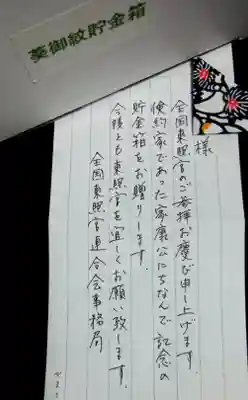 葵御紋貯金箱
様
全国東照宮のご参拝お慶び申し上げます。
倹約家であった家康公にちなんで記念の
貯金箱をお贈りします。
今後とも東照宮を宜しくお願い致します。
全国東照宮連合会事務局